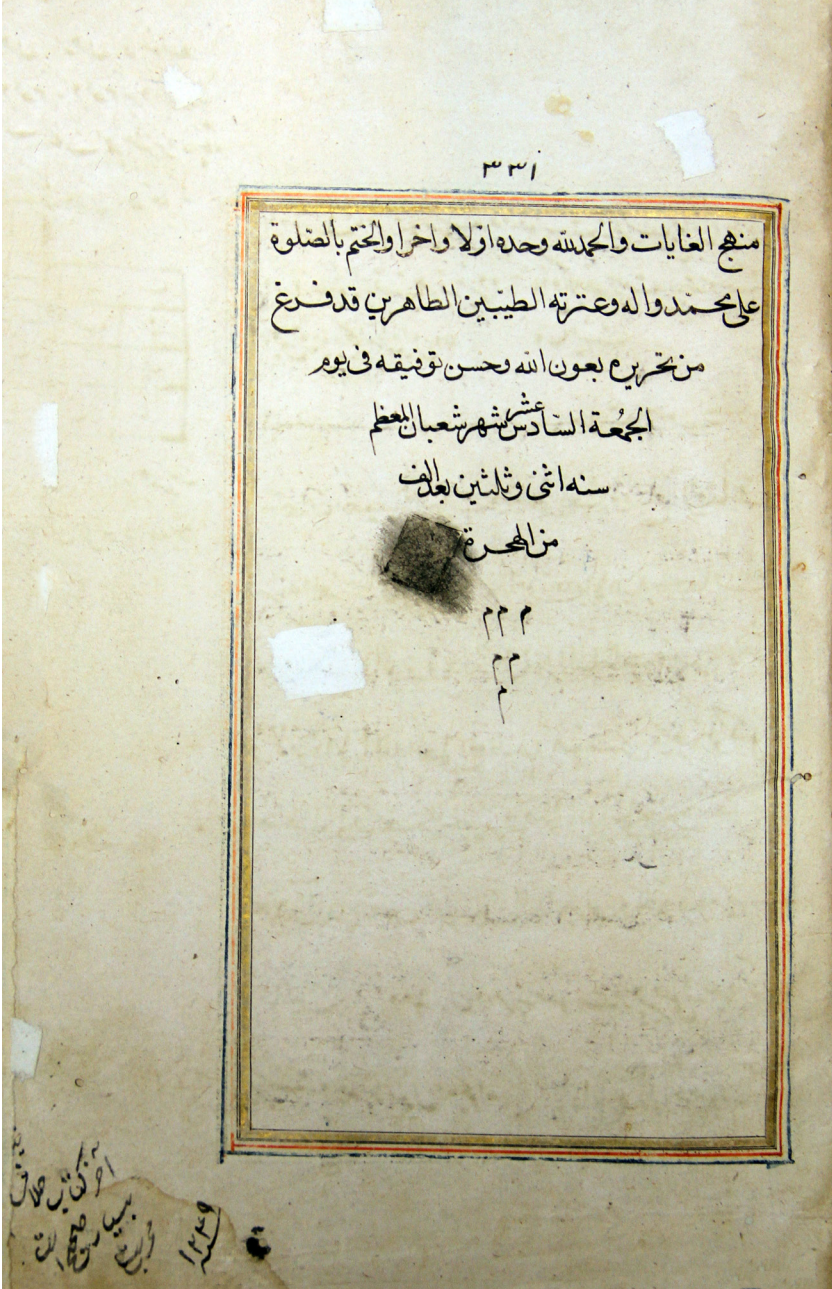 ٣٣١
منهج الغايات والحمدلله وحده اوّلا واخرا والختم بالصّلوة
على محمّد واله وعترته الطيّبين الطاهرين قد فرغ
من تحريره بعون الله وحسن توفيقه فى يوم
الجمُعة السّادس عشر شهر شعبان المعظم
سنه اثنى وثلثين بعد الف
من الهجرة
م م م
م م
م